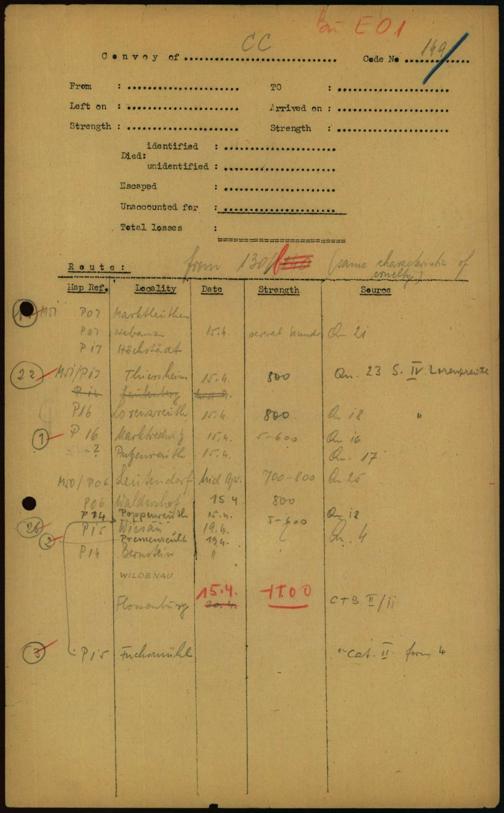 E01
CC
Convoy of
Code No 149
From : TO :
Left on : Arrived on :
Strength : Strength :
identified :
Died:
unidentified :
Escaped :
Unaccounted for :
Total losses :
Route: from 130/ (same characteristic of cruelty?)
Map Ref. Locality Date Strength Source
M51 P07 Marktleuthen
P07 15.4. Qn 21
P17 Höchstädt
22 M51/P17 Thiersheim 15.4. 800 Qn. 23 S. IV Lorenzreuth
P16 Lorenzreuth 15.4. 800 Qn 18 "
1 P 16 Marktredwitz 15.4. 5-600 Qn 16
? 15.4. Qn. 17
M50/P06 Leutendorf Mid Apr. 700-800 Qn 25
P06 Waldershof 15 4 800
P14 Poppenreuth 15.4. 5-600 Qn 12
26 P15 Wiesau 19.4. Qn. 4
2 Premenreuth 19.4.
P14 Bernstein "
WILDENAU
Flossenburg 15.4. 20.4. 1700 CTB II/ii
3 P15 Fuchsmühl "Cat. II form 4